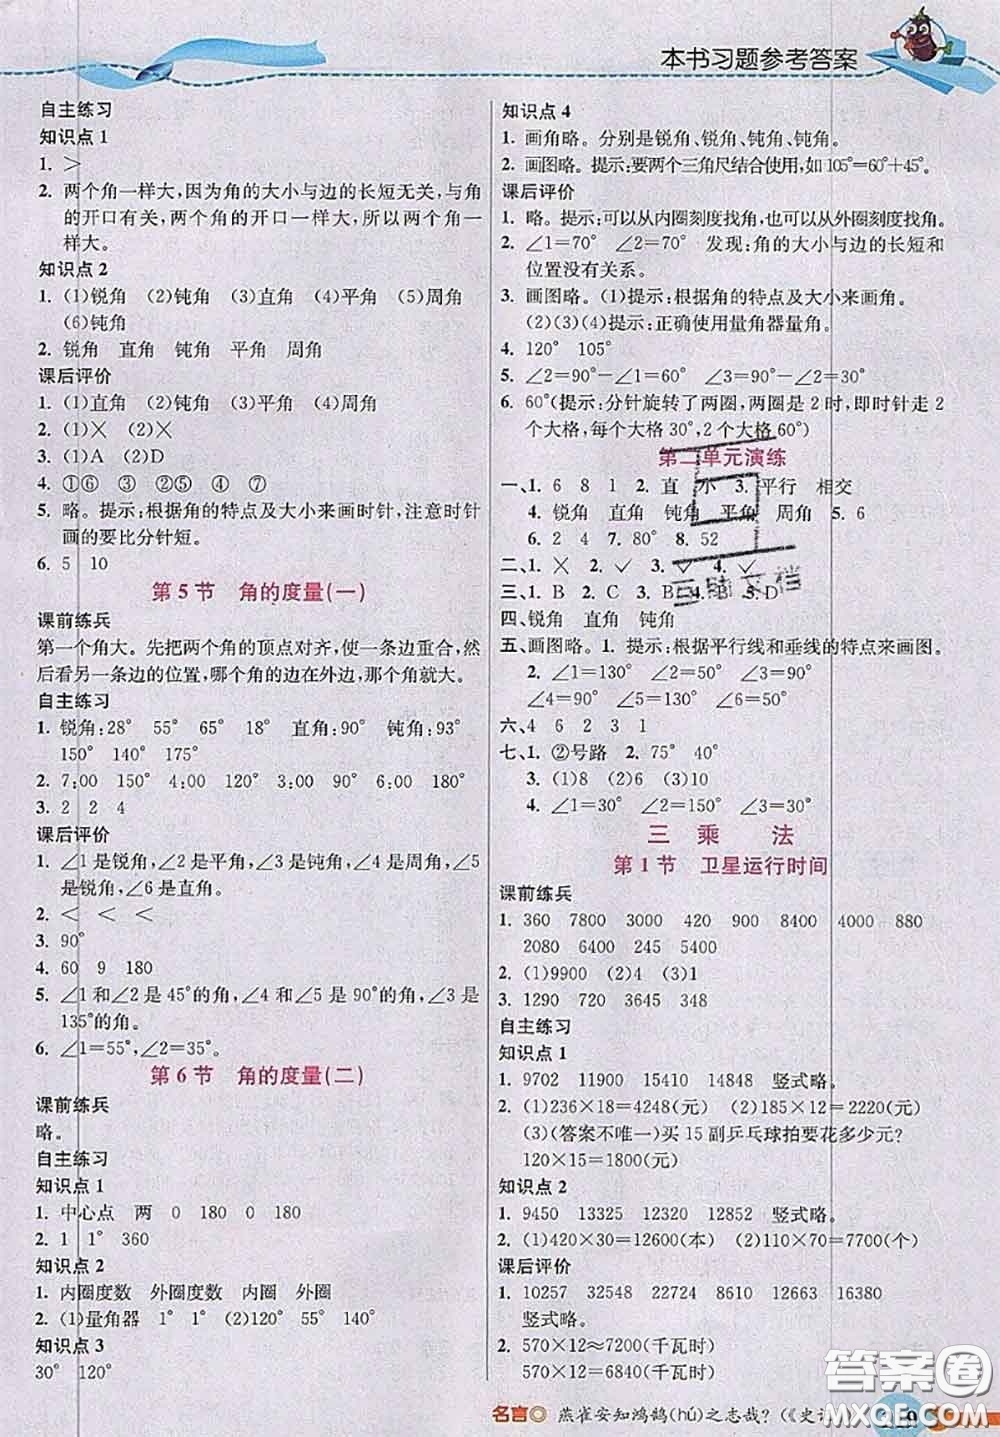 本书习题参考答案
自主练习
知识点 1
1. ＞
2. 两个角一样大,因为角的大小与边的长短无关,与角
的开口有关,两个角的开口一样大,所以两个角一
样大。
知识点 2
1. (1)锐角 (2)钝角 (3)直角 (4)平角 (5)周角
(6)钝角
2. 锐角 直角 钝角 平角 周角
课后评价
1. (1)直角 (2)锐角 (3)平角 (4)周角
2. (1)× (2)×
3. (1)A (2)D
4. ①⑥ ③ ②⑤ ④ ⑦
5. 略。提示:根据角的特点及大小来画时针,注意时针
画的要比分针短。
6. 5 10
第 5 节 角的度量(一)
课前练兵
第一个角大。先把两个角的顶点对齐,使一条边重合,然
后看另一条边的位置,哪个角的边在外边,那个角就大。
自主练习
1. 锐角:28° 55° 65° 18° 直角:90° 钝角:93°
150° 140° 175°
2. 7:00 5:00 4:00 150° 150° 120°
3. 2 2 4
课后评价
1. ∠1是锐角,∠2是平角,∠3是钝角,∠4是周角,∠5
是锐角,∠6是直角。
2. ＜ ＜ ＜
3. 90°
4. 60 9 180
5. ∠1和∠2是45°的角,∠4和∠5是90°的角,∠3是
135°的角。
6. ∠1=55°,∠2=125°。
第 6 节 角的度量(二)
课前练兵
略。
自主练习
知识点 1
1. 中心点 两 0 180 0 180
2. 1 1° 360
知识点 2
1. 内圈度数 外圈度数 内圈 外圈
2. (1)量角器 1° 1° (2)120° 120°
知识点 3
30° 120°
知识点 4
1. 画角略。分别是锐角、锐角、钝角、钝角。
2. 画图略。提示:要两个三角尺结合使用,如105°=60°+45°。
课后评价
1. 略。提示:可以从内圈刻度找角,也可以从外圈刻度找角。
2. ∠1=70° ∠2=70° 发现:角的大小与边的长短和
位置没有关系。
3. 画图略。(1)提示:根据角的特点及大小来画角。
(2)(3)(4)提示:正确使用量角器量角。
4. 120° 105°
5. ∠2=90°－∠1=60° ∠3=90°－∠2=30°
6. 60°(提示:分针旋转了两圈,两圈是2时,即时针走2
个大格,每个大格30°,2个大格60°)
第二单元演练
一、1. 6 8 1 2. 直 小 3. 平行 相交
4. 锐角 直角 钝角 平角 周角 5. 6
6. 2 4 7. 80° 8. 52
二、1. × 2. × 3. ✓ 4. ✓
三、1. B 2. C 3. B 4. B 5. D
四、锐角 直角 钝角
五、画图略。1. 提示:根据平行线和垂线的特点来画图。
2. ∠1=50° ∠2=50° ∠3=90°
∠4=90° ∠5=50° ∠6=130°
六、4 6 2 3 1
七、1. ②号路 2. 75° 40°
3. (1)8 (2)6 (3)10
4. ∠1=30° ∠2=150° ∠3=30°
三 乘 法
第 1 节 卫星运行时间
课前练兵
1. 360 7800 3000 420 900 8400 4000 880
2080 6400 245 5400
2. (1)9900 (2)4 (3)1
3. 1290 720 3645 348
自主练习
知识点 1
1. 9702 11900 15410 14848 竖式略。
2. (1)236×18=4248(元) (2)185×12=2220(元)
(3)(答案不唯一)买 15 副乒乓球拍要花多少元?
120×15=1800(元)
知识点 2
1. 9450 13325 12320 12852 竖式略。
2. (1)420×30=12600(本) (2)110×70=7700(个)
课后评价
1. 10257 32548 22724 8610 12663 16380
竖式略。
2. 570×12≈7200(千瓦时)
570×12=6840(千瓦时)
答案圈
名言 燕雀安知鸿鹄(hú)之志哉?(《史